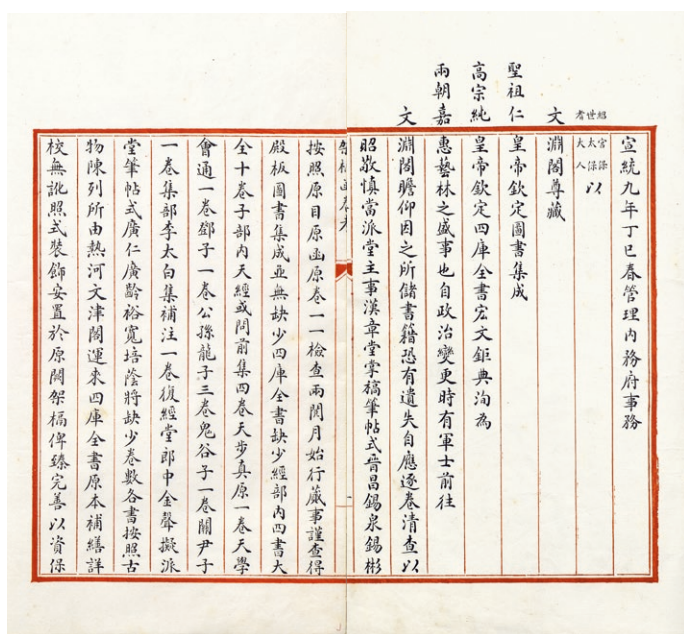 宣統九年丁巳春管理內務府事務
紹世耆
宮太保
太保大人
以
文
淵閣尊藏
聖祖仁
皇帝欽定圖書集成
高宗純
皇帝欽定四庫全書宏文鉅典洵為
兩朝嘉
惠藝林之盛事也自政治變更時有軍士前往
文
淵閣瞻仰因之所儲書籍恐有遺失自應逐卷清查以
昭敬慎當派堂主事漢章堂掌稿筆帖式晉昌錫泉錫彬
架槅函卷考
按照原目原函原卷一一檢查兩閱月始行蕆事謹查得
殿板圖書集成並無缺少四庫全書缺少經部內四書大
全十卷子部內天經或問前集四卷天步真原一卷天學
會通一卷鄧子一卷公孫龍子三卷鬼谷子一卷關尹子
一卷集部李太白集補注一卷復經堂郎中金聲擬派
堂筆帖式廣仁廣齡裕寬培蔭將缺少卷數各書按照古
物陳列所由熱河文津閣運來四庫全書原本補繕詳
校無訛照式裝飾安置於原閣架槅俾臻完善以資保